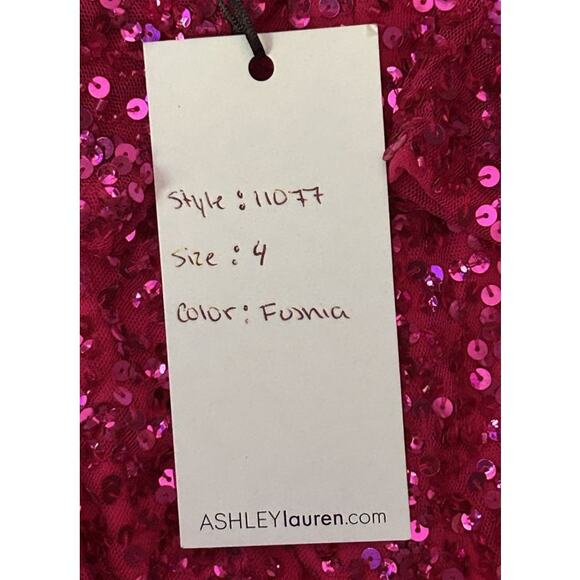 Style: 11077
Size: 4
Color: Fushia
ASHLEYlauren.com